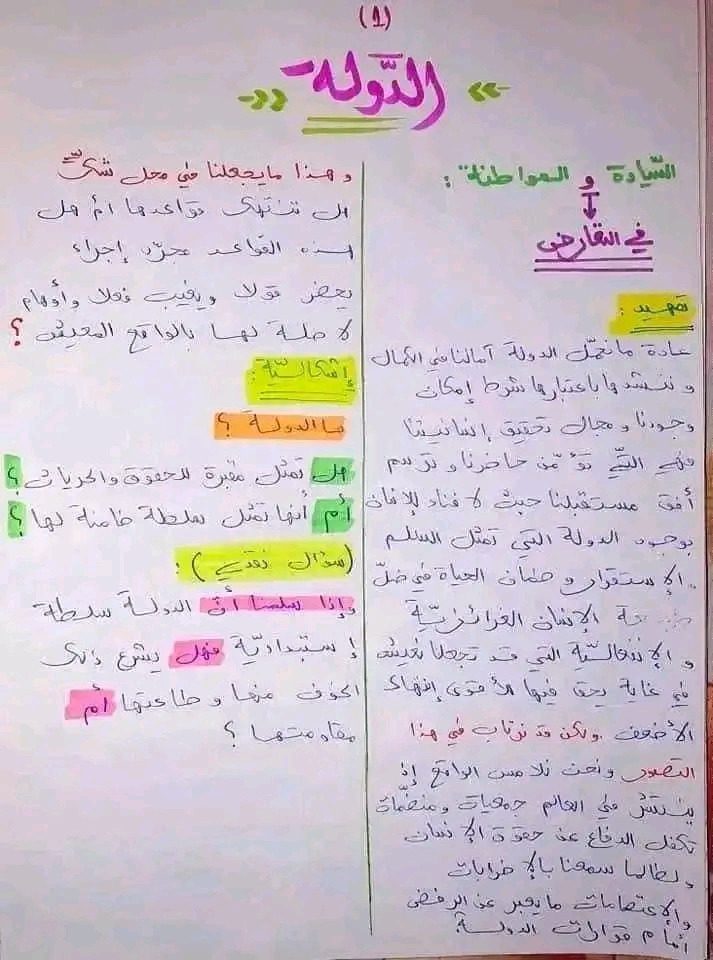 (1)
الدّولة
السّيادة و المواطنة :
في التقارض
تمهيد :
عادة ما نحمّل الدولة آمالنا في الكمال
و ننشدها باعتبارها شرط إمكان
وجودنا و مجال تحقيق إنسانيتنا
فهي التّي تؤمّن حاضرنا و ترسم
أفق مستقبلنا حيث لا فناء للإنسان
بوجود الدولة التي تمثل السلم
والإستقرار و ضمان الحياة في ضلّ
الإنسان الغرائزيّة
و الإنفعاليّة التي قد تجعلنا نعيش
في غابة يحق فيها للأقوى إنهاء
الأضعف ولكن قد نرتاب في هذا
التصور ونحن نلامس الواقع إذ
ينتشر في العالم جمعيات ومنظمات
تكفل الدفاع عن حقوق الإنسان
ولطالما سمعنا بالإضرابات
والإعتصامات ما يعبر عن الرفض
أمام قرارات الدولة.
و هذا ما يجعلنا في محل شكّ
هل تنتهك قواعدها أم هل
هذه القواعد مجرّد إجراء
يحضر قولا ويغيب فعلا وأوهام
لا صلة لها بالواقع المعيش ؟
إشكاليّة :
ما الدولة ؟
هل تمثل مقبرة للحقوق والحريات ؟
أم أنها تمثل سلطة ضامنة لها ؟
(سؤال نقدي) :
وإذا سلمنا أنّ الدولة سلطة
إستبداديّة فهل يشرع ذلك
الخوف منها و طاعتها أم
مقاومتها ؟